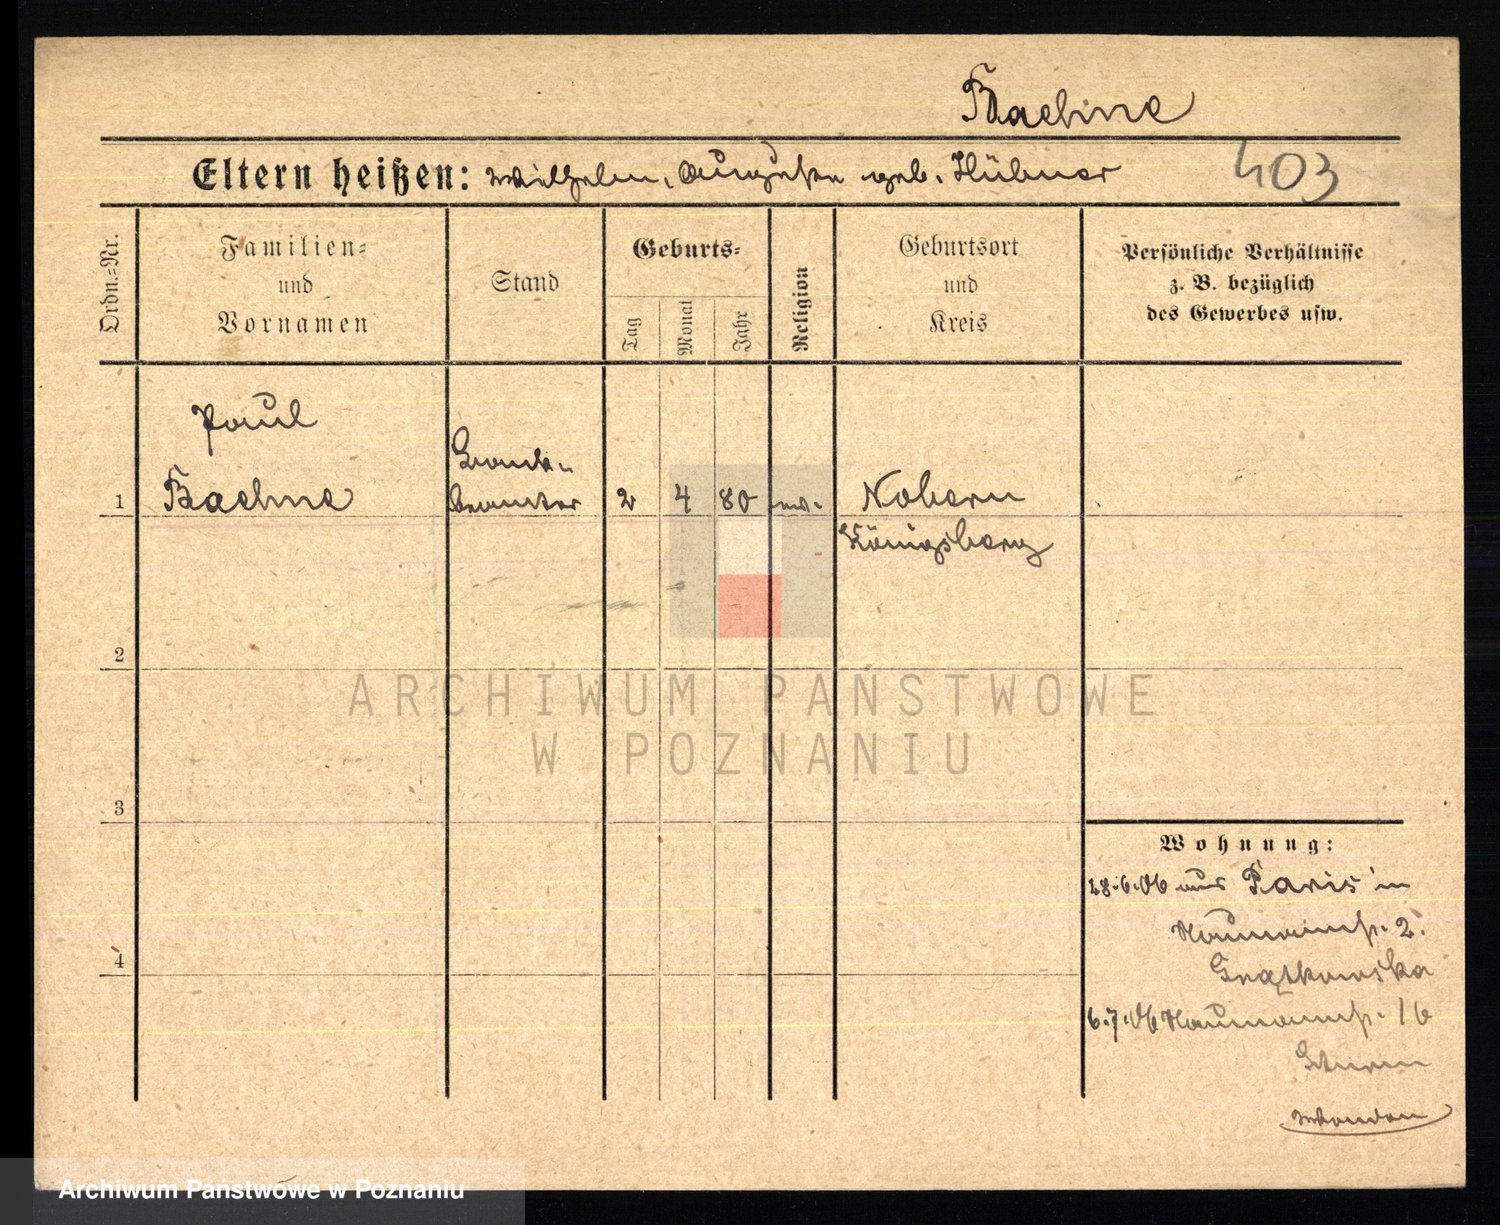 Baehne
Eltern heißen: Wilhelm, Auguste geb. Hübner 403
Ordn.=Nr.
Familien=
und
Vornamen
Stand
Geburts=
Tag
Monat
Jahr
Religion
Geburtsort
und
Kreis
Persönliche Verhältnisse
z. B. bezüglich
des Gewerbes usw.
Paul
Bank-
1 Baehne beamter 2 4 80 ev. Nabern
Königsberg
2
ARCHIWUM PAŃSTWOWE
W POZNANIU
3
Wohnung:
28.6.06 aus Paris in
Naumannstr. 2.
4
6.7.06 Naumannstr. 16
Sturm
Archiwum Państwowe w Poznaniu